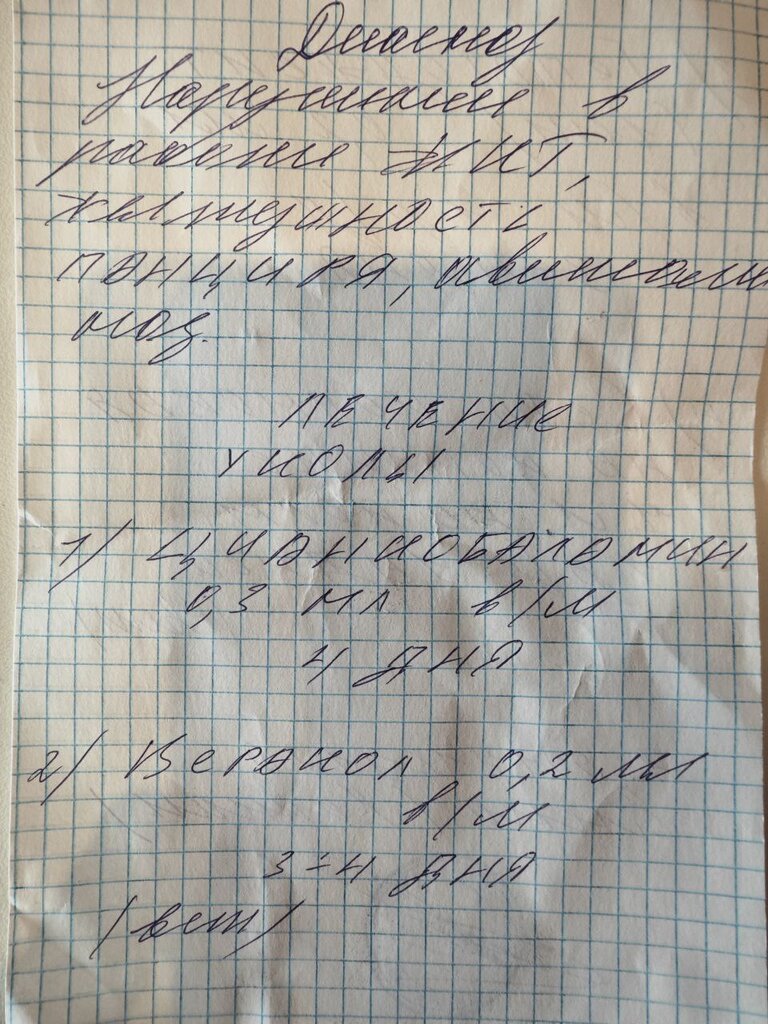 Диагноз
Нарушение в
работе ЖКТ,
желтушность
панциря, авитаминоз.
ЛЕЧЕНИЕ
УКОЛЫ
1) ЦИАНКОБАЛАМИН
0,3 мл в/м
4 ДНЯ
2) Веракол 0,2 мл
в/м
3÷4 ДНЯ
(вет)